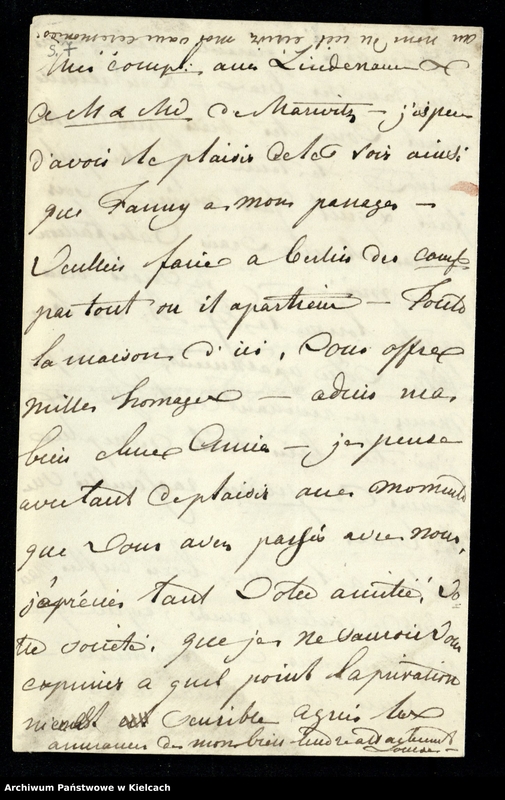 au nom du ciel écrivez moi sans ceremonies.
5.
Mes compl: aux Lindenau &
a M & Md de Marwitz – j'espere
d'avoir le plaisir de les voir ainsi
que Fanny a mon passage –
Veuillez faire a Berlin des compl
partout ou il apartient – Toute
la maison d'ici, vous offre
milles homages – adieu ma
bien chere Amie – je pense
avec tant de plaisir aux moments
que vous avez passés avec nous,
j'aprécie tant votre amitié, vo
tre societé, que je ne saurois vous
exprimer a quel point la privation
m'en est sensible agréés les
assurances de mon bien tendre attachement
Louise –
Archiwum Państwowe w Kielcach